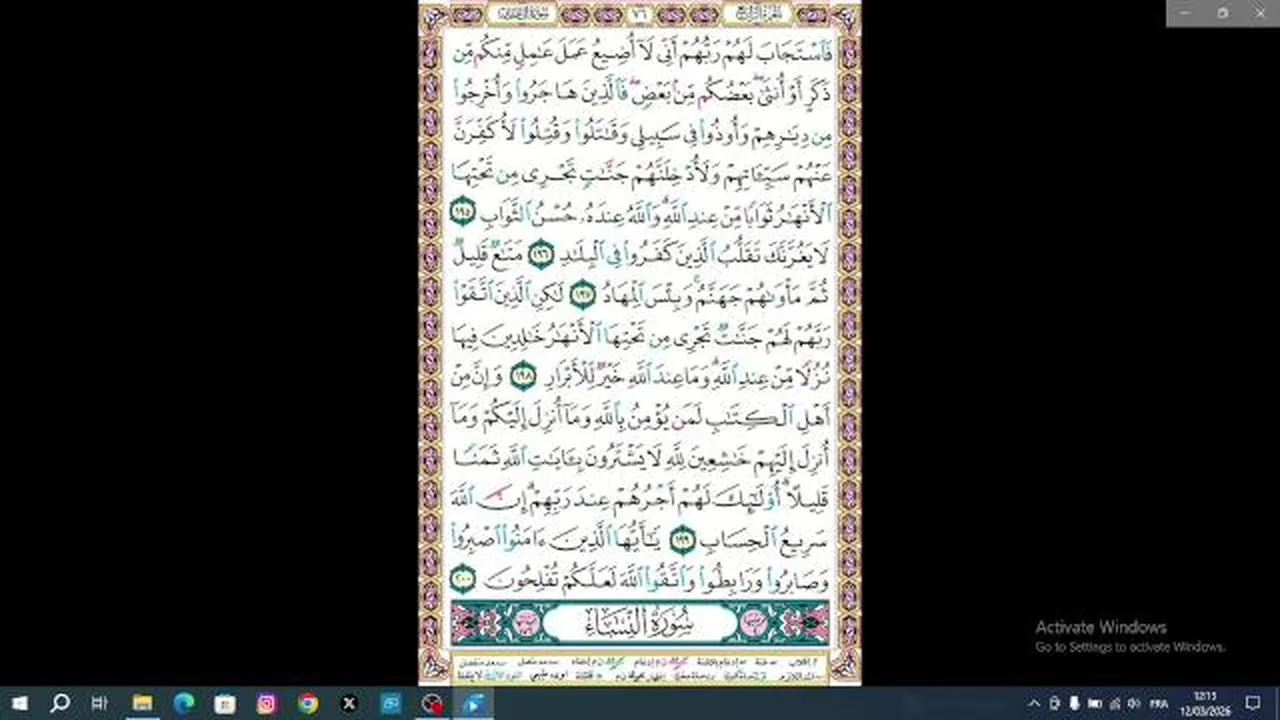 سورة آل عمران ٧٦ الجزء الرابع
فَاسْتَجَابَ لَهُمْ رَبُّهُمْ أَنِّى لَآ أُضِيعُ عَمَلَ عَـٰمِلٍ مِّنكُم مِّن
ذَكَرٍ أَوْ أُنثَىٰ ۖ بَعْضُكُم مِّنۢ بَعْضٍ ۖ فَالَّذِينَ هَاجَرُوا۟ وَأُخْرِجُوا۟
مِن دِيَـٰرِهِمْ وَأُوذُوا۟ فِى سَبِيلِى وَقَـٰتَلُوا۟ وَقُتِلُوا۟ لَأُكَفِّرَنَّ
عَنْهُمْ سَيِّـَٔاتِهِمْ وَلَأُدْخِلَنَّهُمْ جَنَّـٰتٍ تَجْرِى مِن تَحْتِهَا
الْأَنْهَـٰرُ ثَوَابًا مِّنْ عِندِ اللَّهِ ۗ وَاللَّهُ عِندَهُۥ حُسْنُ الثَّوَابِ ١٩٥
لَا يَغُرَّنَّكَ تَقَلُّبُ الَّذِينَ كَفَرُوا۟ فِى الْبِلَـٰدِ ١٩٦ مَتَـٰعٌ قَلِيلٌ
ثُمَّ مَأْوَىٰهُمْ جَهَنَّمُ ۚ وَبِئْسَ الْمِهَادُ ١٩٧ لَـٰكِنِ الَّذِينَ اتَّقَوْا۟
رَبَّهُمْ لَهُمْ جَنَّـٰتٌ تَجْرِى مِن تَحْتِهَا الْأَنْهَـٰرُ خَـٰلِدِينَ فِيهَا
نُزُلًا مِّنْ عِندِ اللَّهِ ۗ وَمَا عِندَ اللَّهِ خَيْرٌ لِّلْأَبْرَارِ ١٩٨ وَإِنَّ مِنْ
أَهْلِ الْكِتَـٰبِ لَمَن يُؤْمِنُ بِاللَّهِ وَمَآ أُنزِلَ إِلَيْكُمْ وَمَآ
أُنزِلَ إِلَيْهِمْ خَـٰشِعِينَ لِلَّهِ لَا يَشْتَرُونَ بِـَٔايَـٰتِ اللَّهِ ثَمَنًا
قَلِيلًا ۗ أُو۟لَـٰٓئِكَ لَهُمْ أَجْرُهُمْ عِندَ رَبِّهِمْ ۗ إِنَّ اللَّهَ
سَرِيعُ الْحِسَابِ ١٩٩ يَـٰٓأَيُّهَا الَّذِينَ ءَامَنُوا۟ اصْبِرُوا۟
وَصَابِرُوا۟ وَرَابِطُوا۟ وَاتَّقُوا۟ اللَّهَ لَعَلَّكُمْ تُفْلِحُونَ ٢٠٠
سُورَةُ النِّسَاءِ
Activate Windows
Go to Settings to activate Windows.
FRA
12:15
12/03/2026